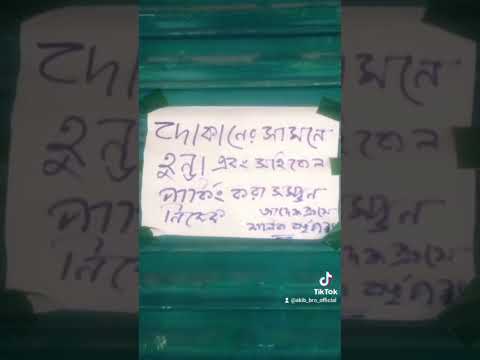 দোকানের সামনে
হুন্ডা এবং সাইকেল
পার্কিং করা সম্পুন
নিষেধ আদেশক্রমে
মালিক কর্তৃপক্ষ
TikTok
@akib_bro_official